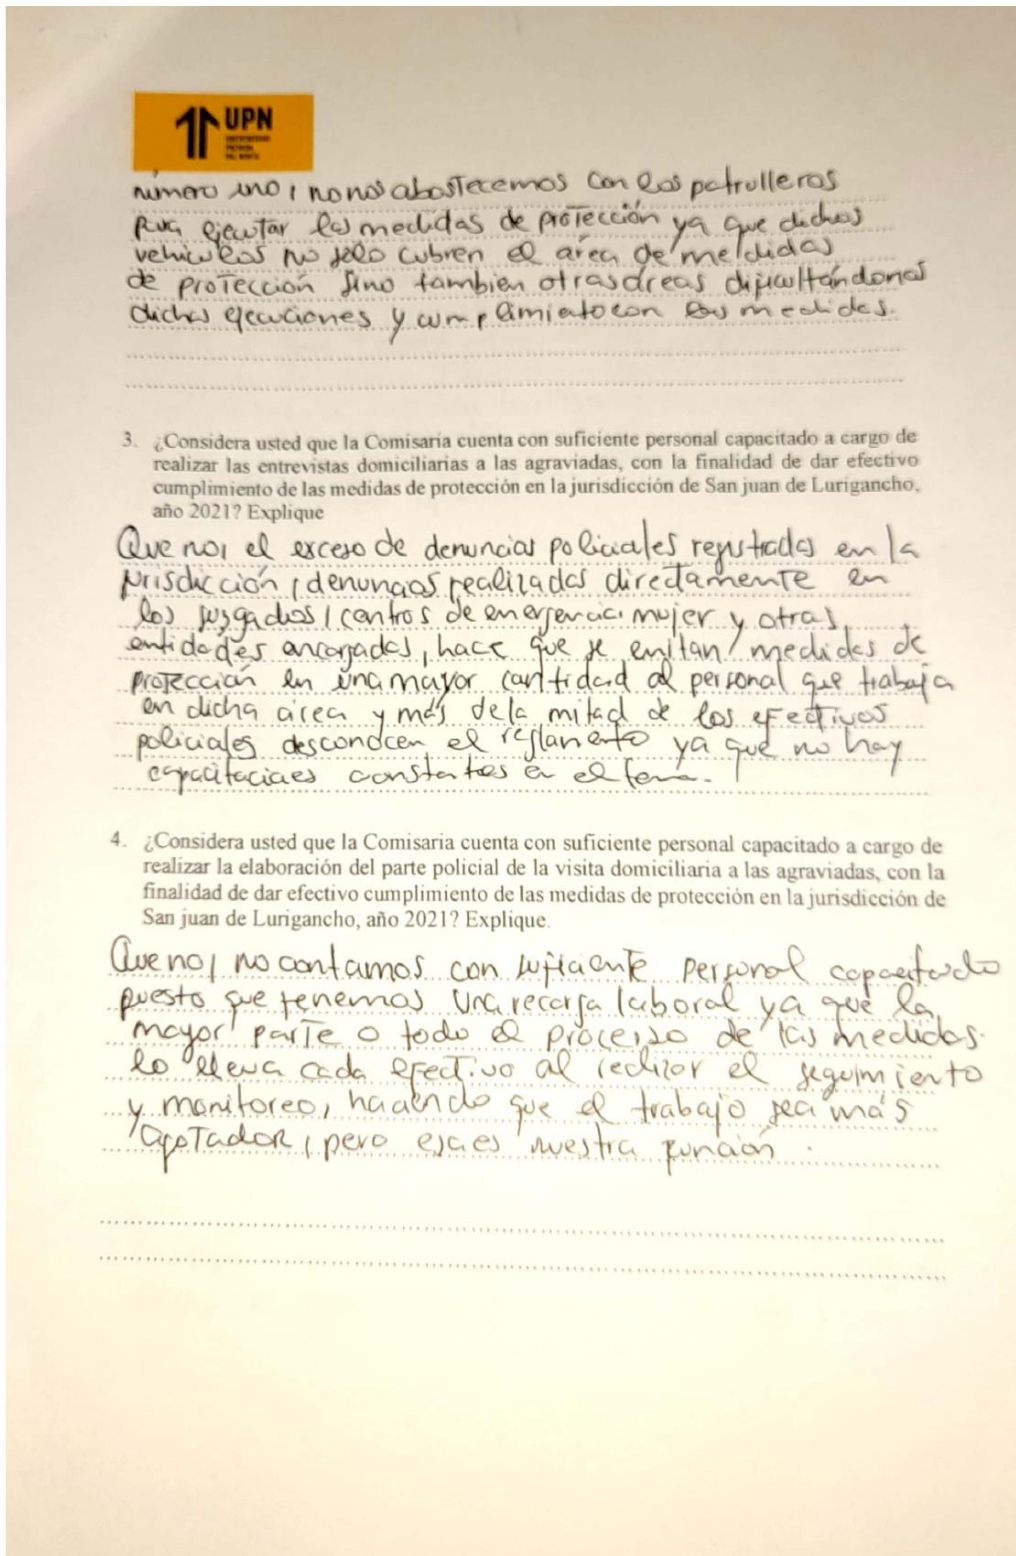 UPN
UNIVERSIDAD
PRIVADA
DEL NORTE
número uno, no nos abastecemos con los patrulleros
Para ejecutar las medidas de protección ya que dichos
vehículos no sólo cubren el área de meldidas
de protección sino tambien otras áreas dificultándonos
dichas ejecuciones y cumplimiato con las medidas.
3. ¿Considera usted que la Comisaria cuenta con suficiente personal capacitado a cargo de
realizar las entrevistas domiciliarias a las agraviadas, con la finalidad de dar efectivo
cumplimiento de las medidas de protección en la jurisdicción de San juan de Lurigancho,
año 2021? Explique
Que no, el exceso de denuncias policiales registradas en la
jurisdicción, denuncias realizadas directamente en
los juzgados, centros de emergencia mujer y otras
entidades encargadas, hace que se emitan medidas de
protección en una mayor cantidad al personal que trabaja
en dicha área y más de la mitad de los efectivos
policiales desconocen el reglamento ya que no hay
capacitaciaes constantes en el tema.
4. ¿Considera usted que la Comisaria cuenta con suficiente personal capacitado a cargo de
realizar la elaboración del parte policial de la visita domiciliaria a las agraviadas, con la
finalidad de dar efectivo cumplimiento de las medidas de protección en la jurisdicción de
San juan de Lurigancho, año 2021? Explique.
Que no, no contamos con suficiente personal capacitado
puesto que tenemos una recarga laboral ya que la
mayor parte o todo el proceso de las medidas
lo lleva cada efectivo al realizar el seguimiento
y monitoreo, haciendo que el trabajo sea más
agotador, pero esa es nuestra función.